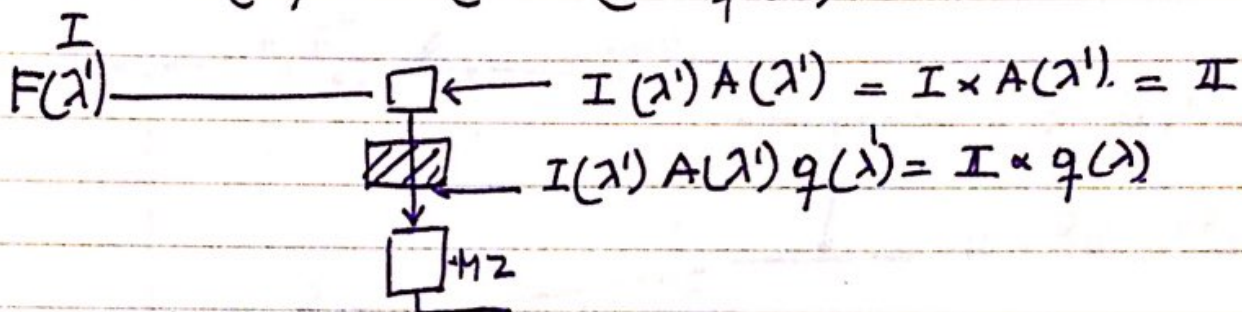 I
F(λ')
I(λ') A(λ') = I × A(λ'). = II
I(λ') A(λ') q(λ') = II × q(λ)